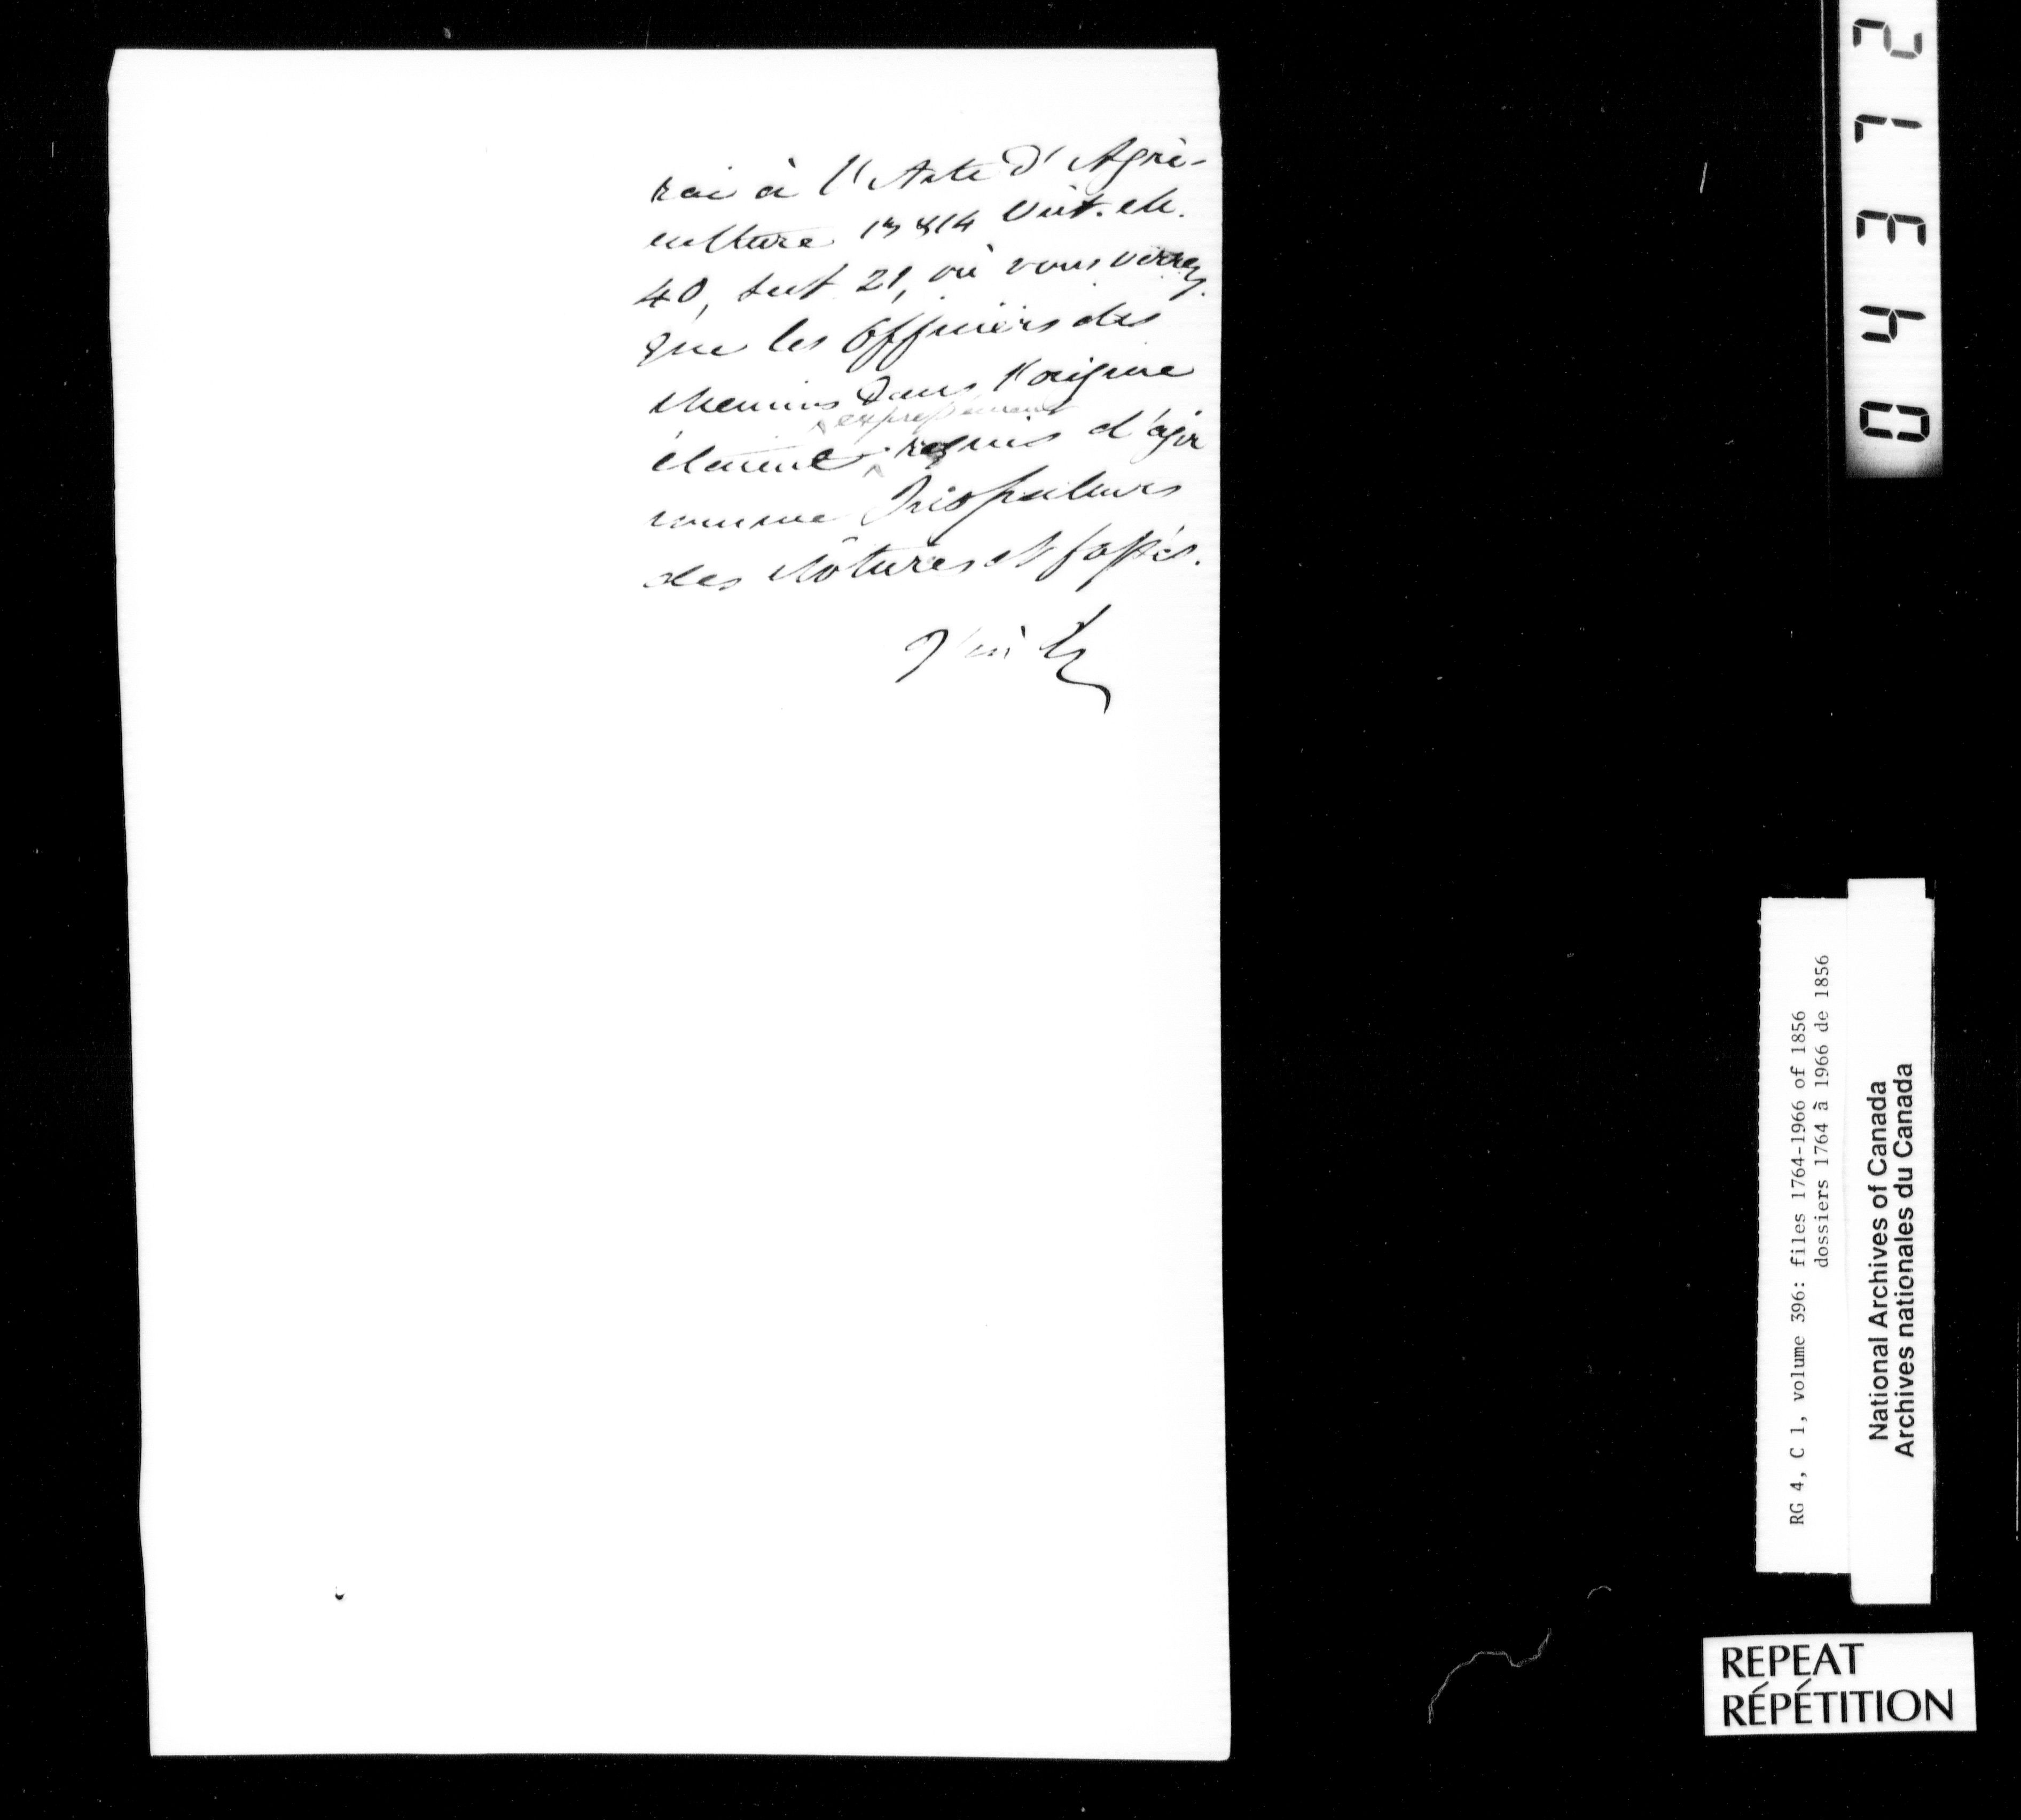 rai à l'Acte d'Agri-
culture 13 & 14 Vict. ch.
40, sect 21, où vous verrez
que les Officiers des
chemins dans l'origine
expressément
étaient requis d'agir
comme Inspecteurs
des clôtures et fossés.
J'ai
04312
RG 4, C 1, volume 396: files 1764-1966 of 1856
dossiers 1764 à 1966 de 1856
National Archives of Canada
Archives nationales du Canada
REPEAT
RÉPÉTITION